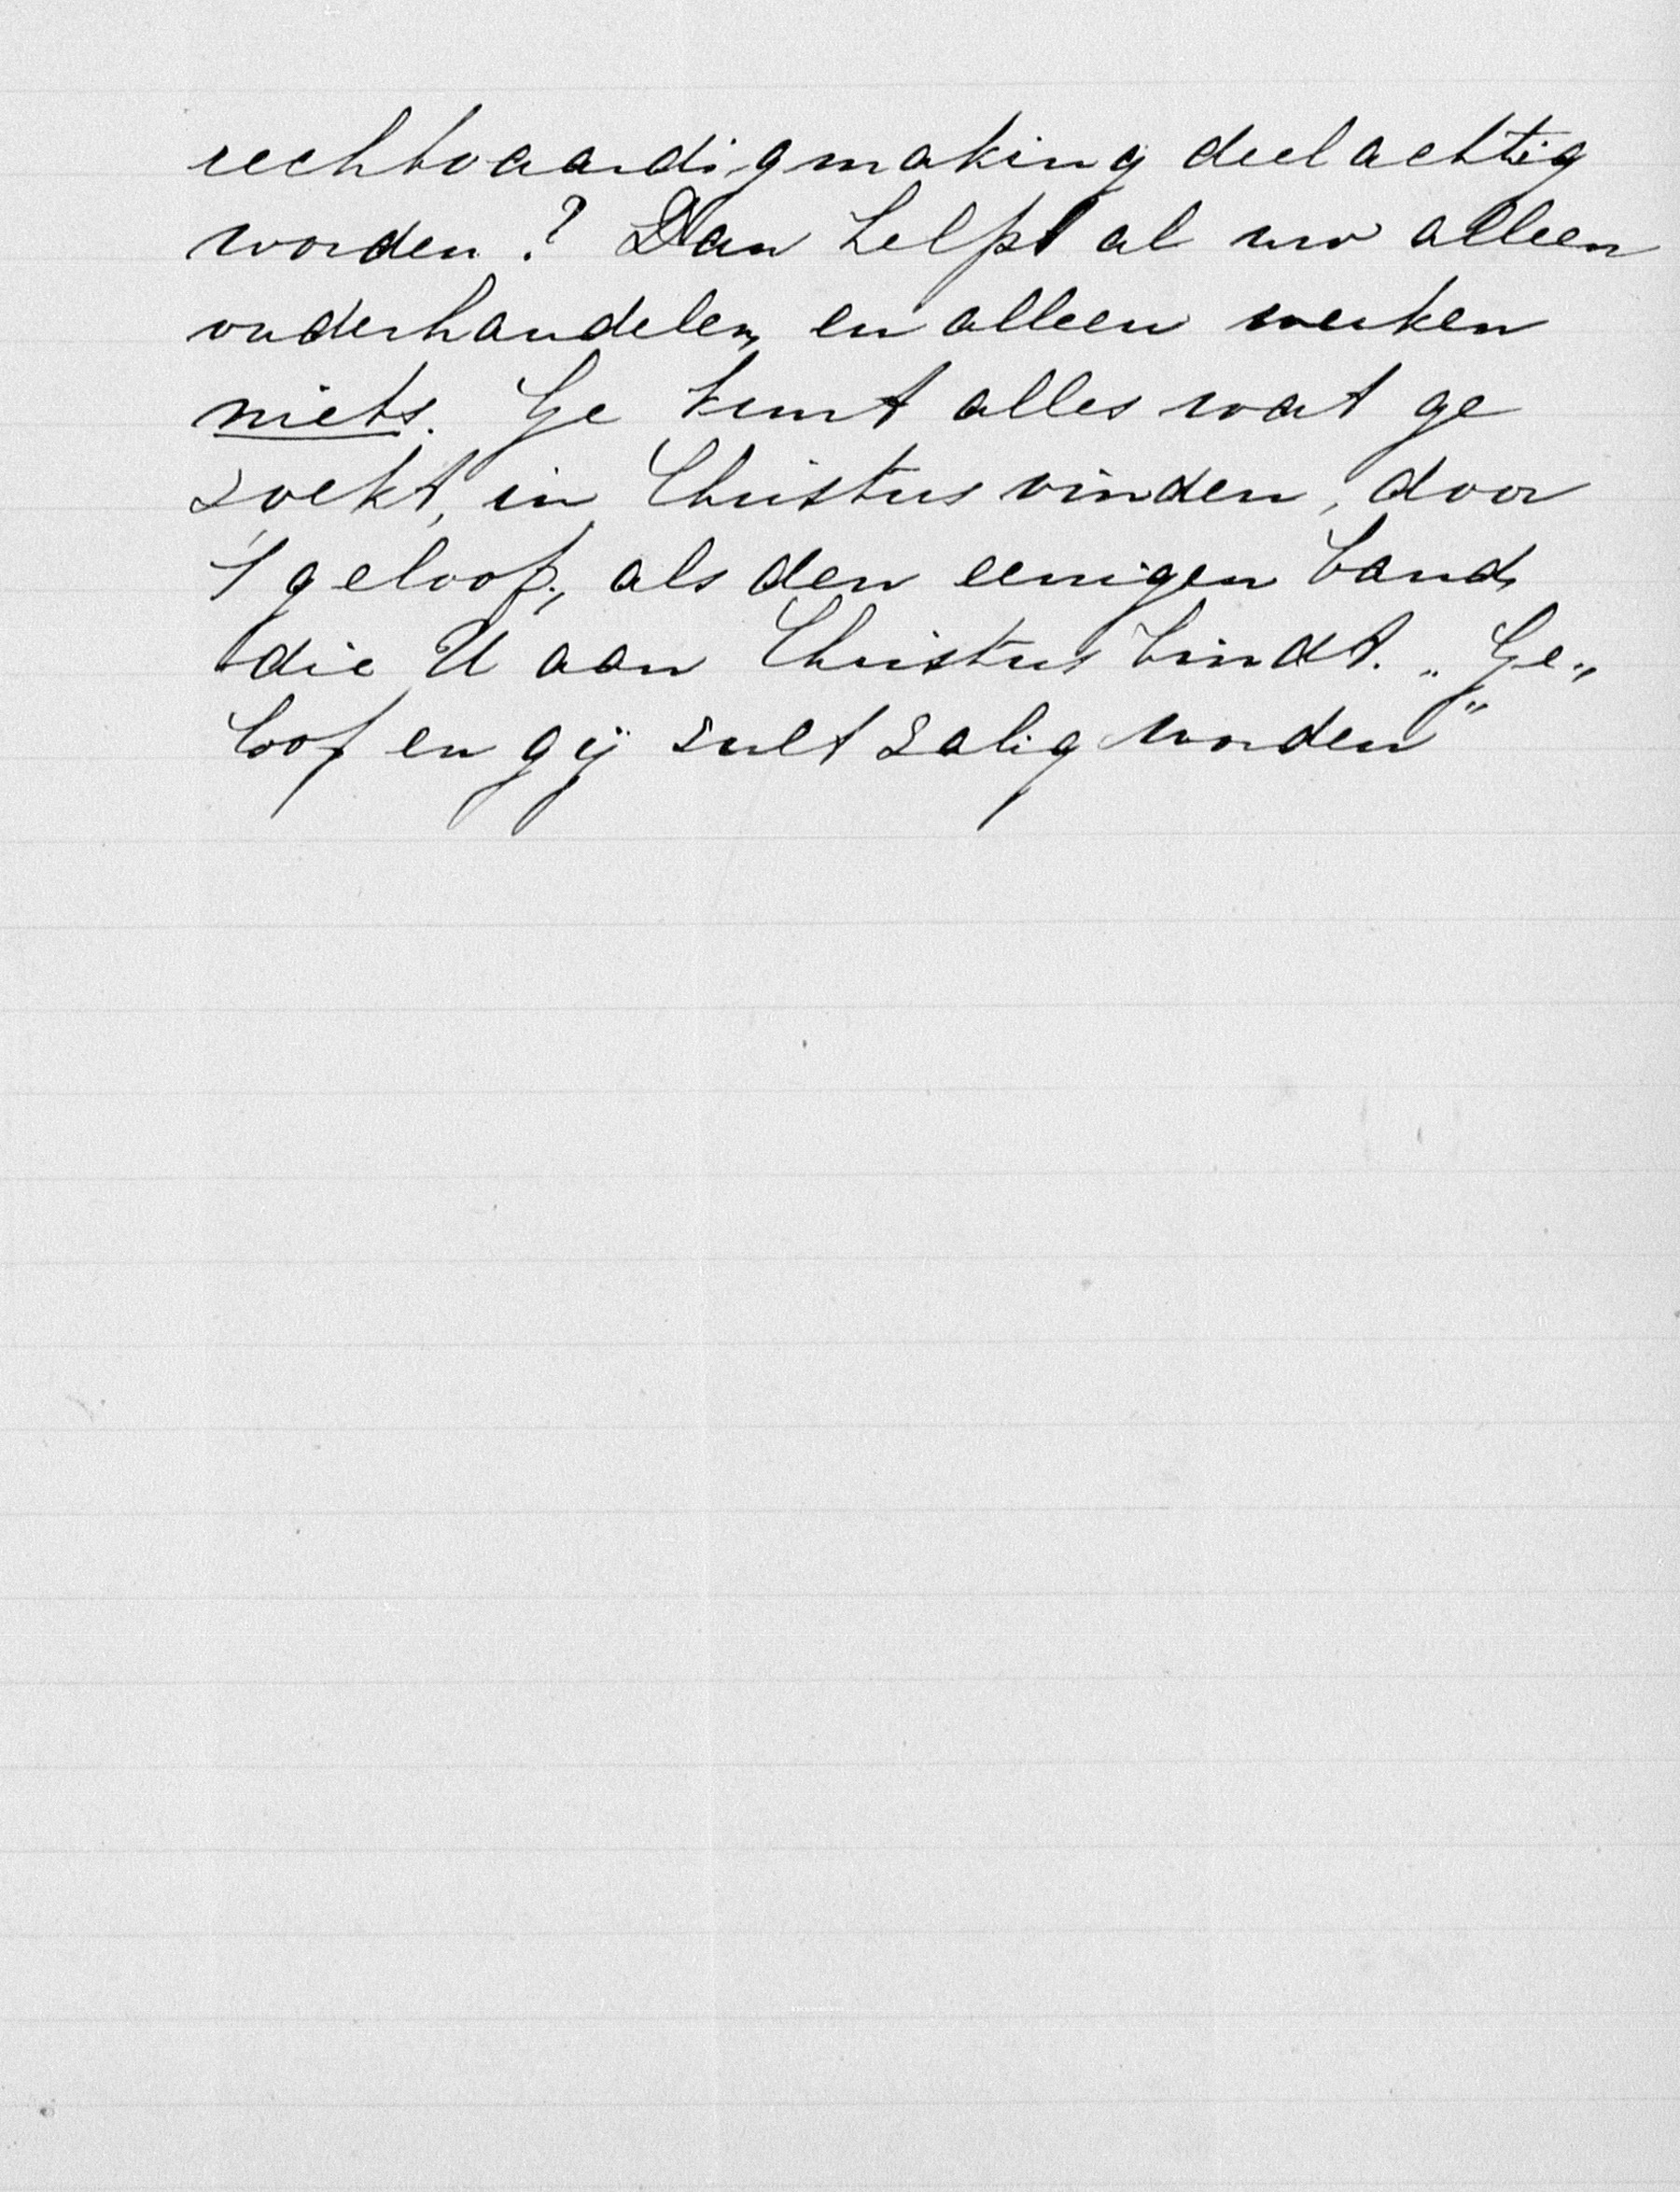 rechtvaardigmaking deelachtig
worden? Dan helpt al uw alleen
onderhandelen en alleen werken
niets. Ge kunt alles wat ge
zoekt, in Christus vinden, door
't geloof, als den eenigen band,
die U aan Christus bindt. „Ge„
loof en gij zult zalig worden"